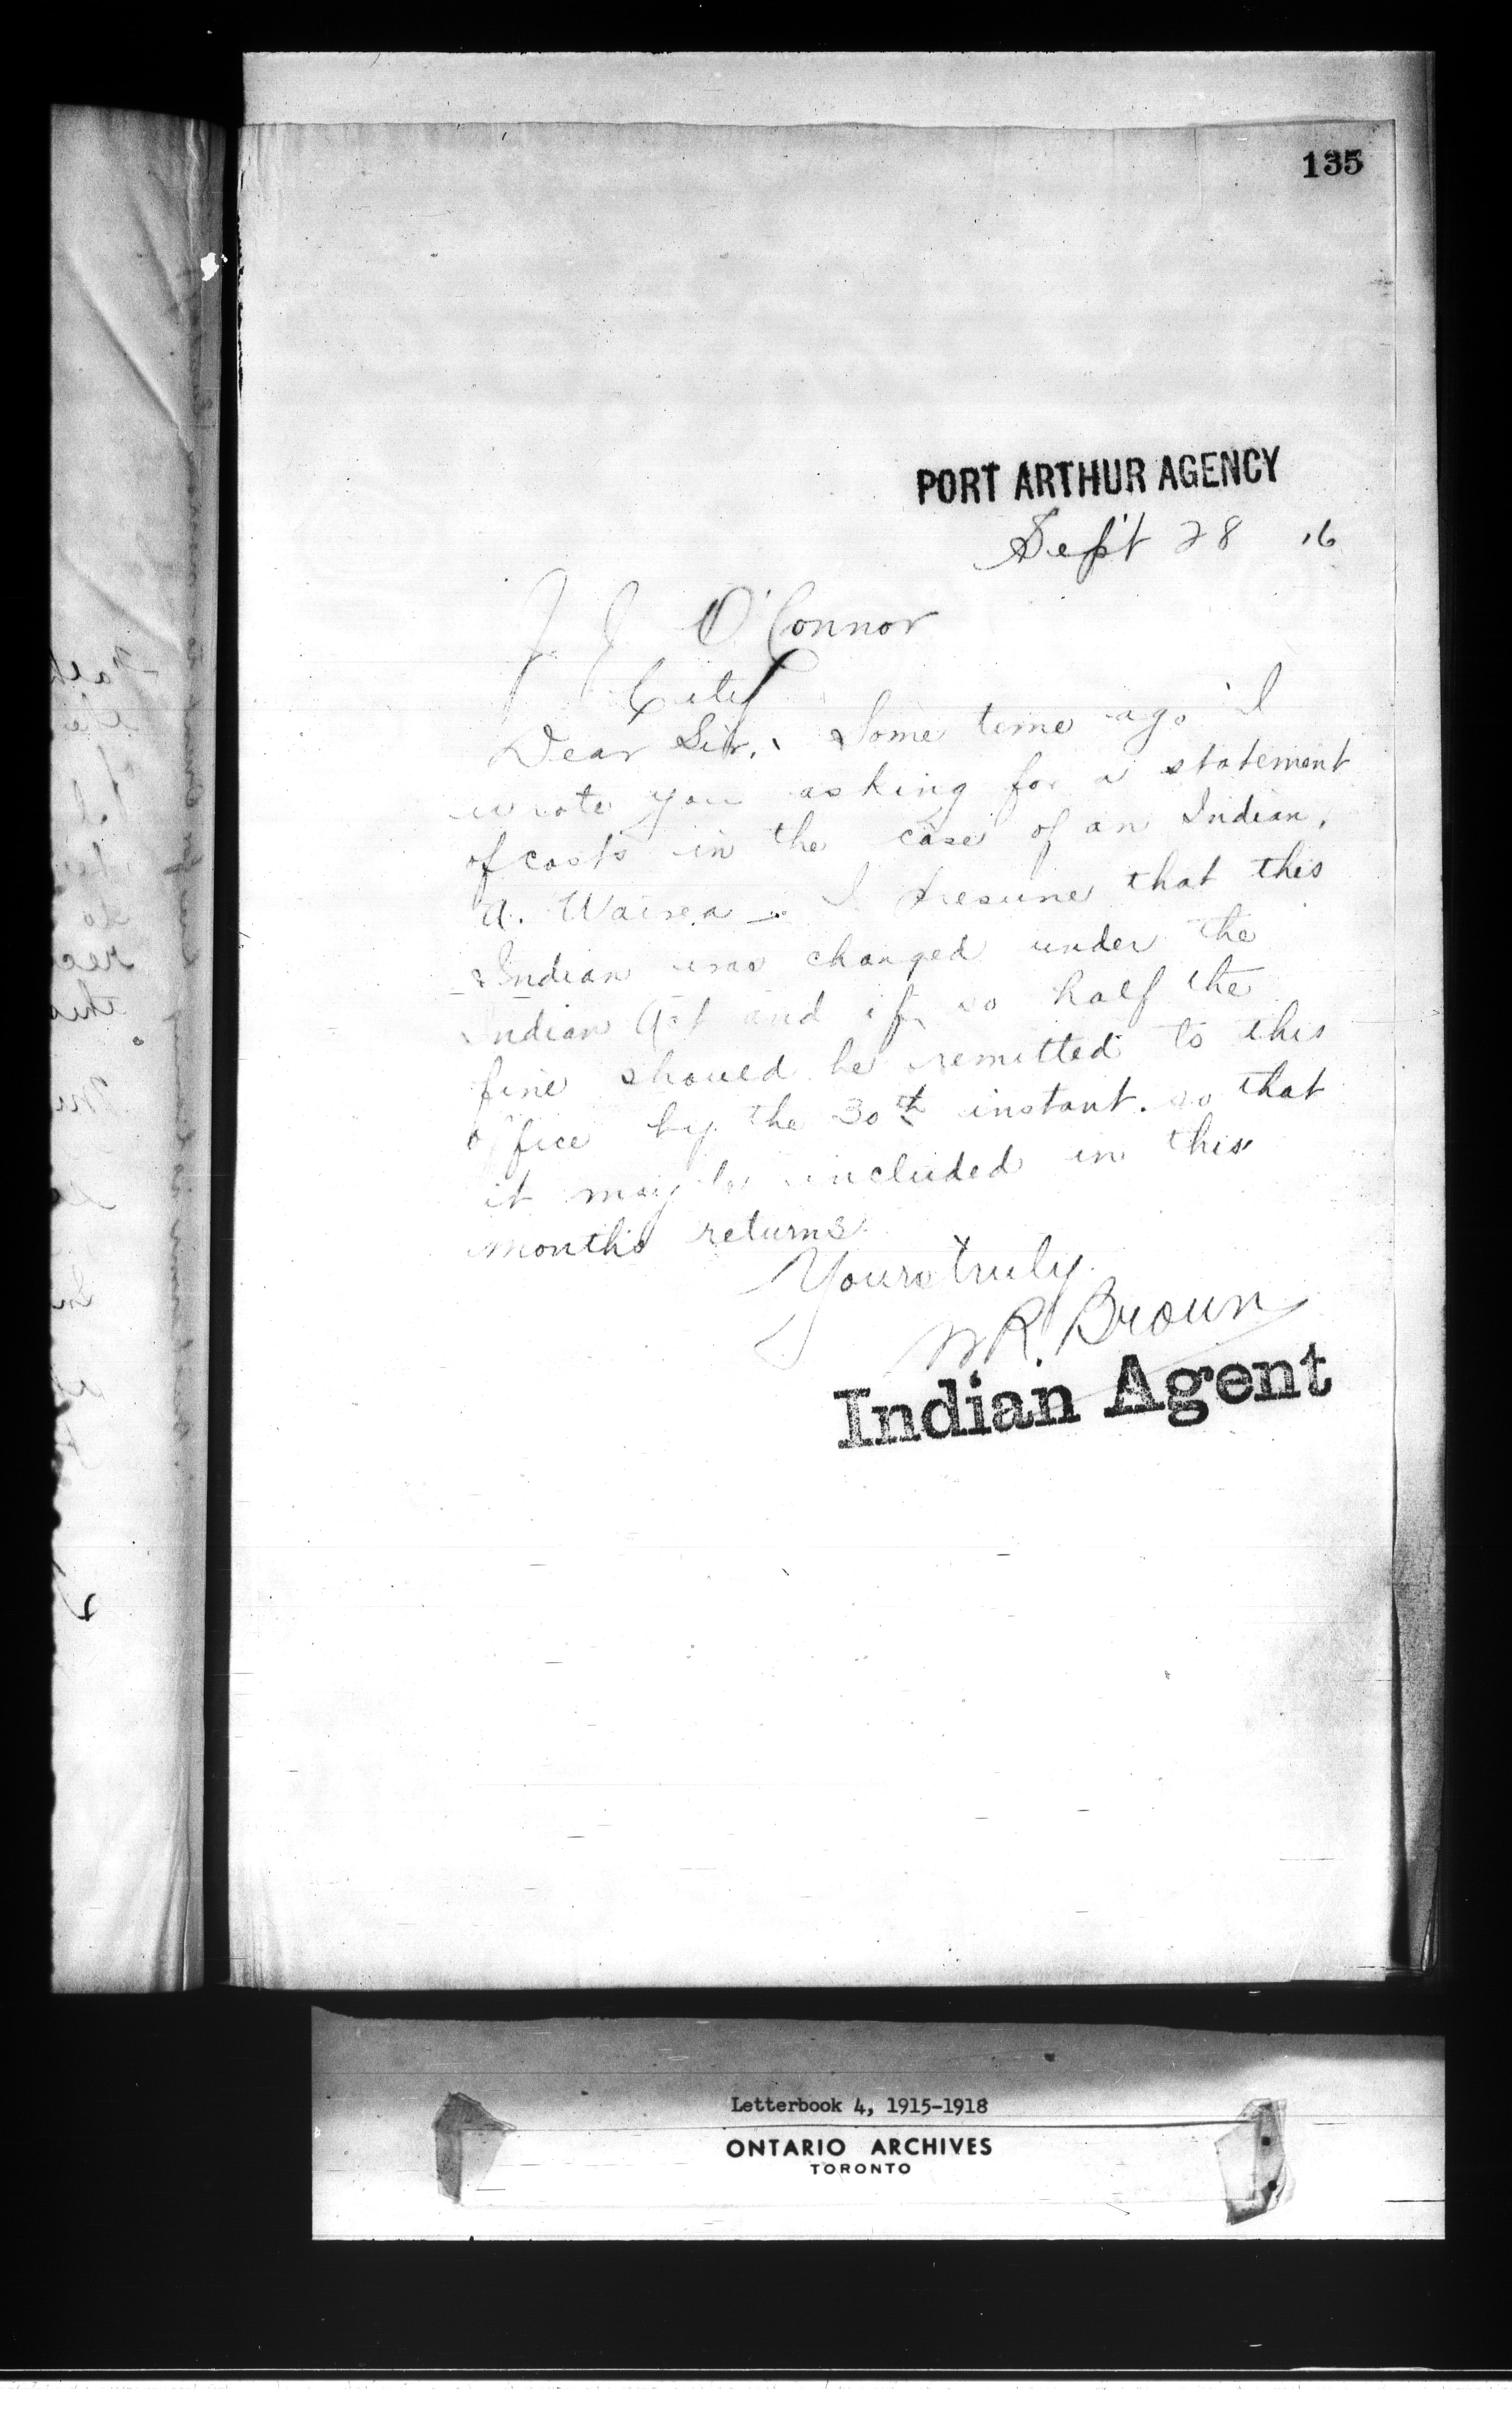 135
PORT ARTHUR AGENCY
Sep't 28 16
J. J. O'Connor
City
Dear Sir. Some time ago I
wrote you asking for a statement
of costs in the case of an Indian,
A. Waisea. I presume that this
Indian was charged under the
Indian Act and if so half the
fine should be remitted to this
office by the 30th instant. so that
it may be included in this
months returns.
Yours truly
W R. Brown
Indian Agent
Letterbook 4, 1915-1918
ONTARIO ARCHIVES
TORONTO